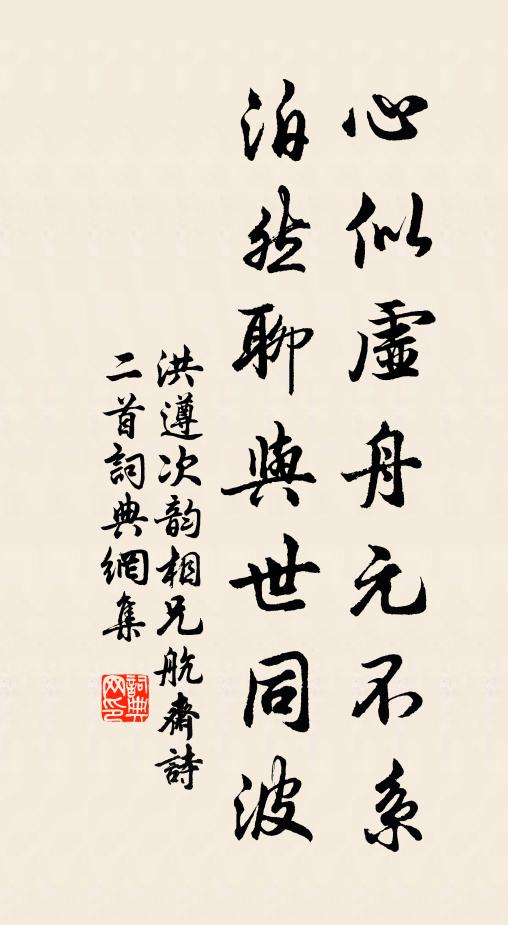 心似虛舟元不系
泊然聊與世同波
洪遵次韵相兄航齋詩
二首詞典網集
詞典
网印